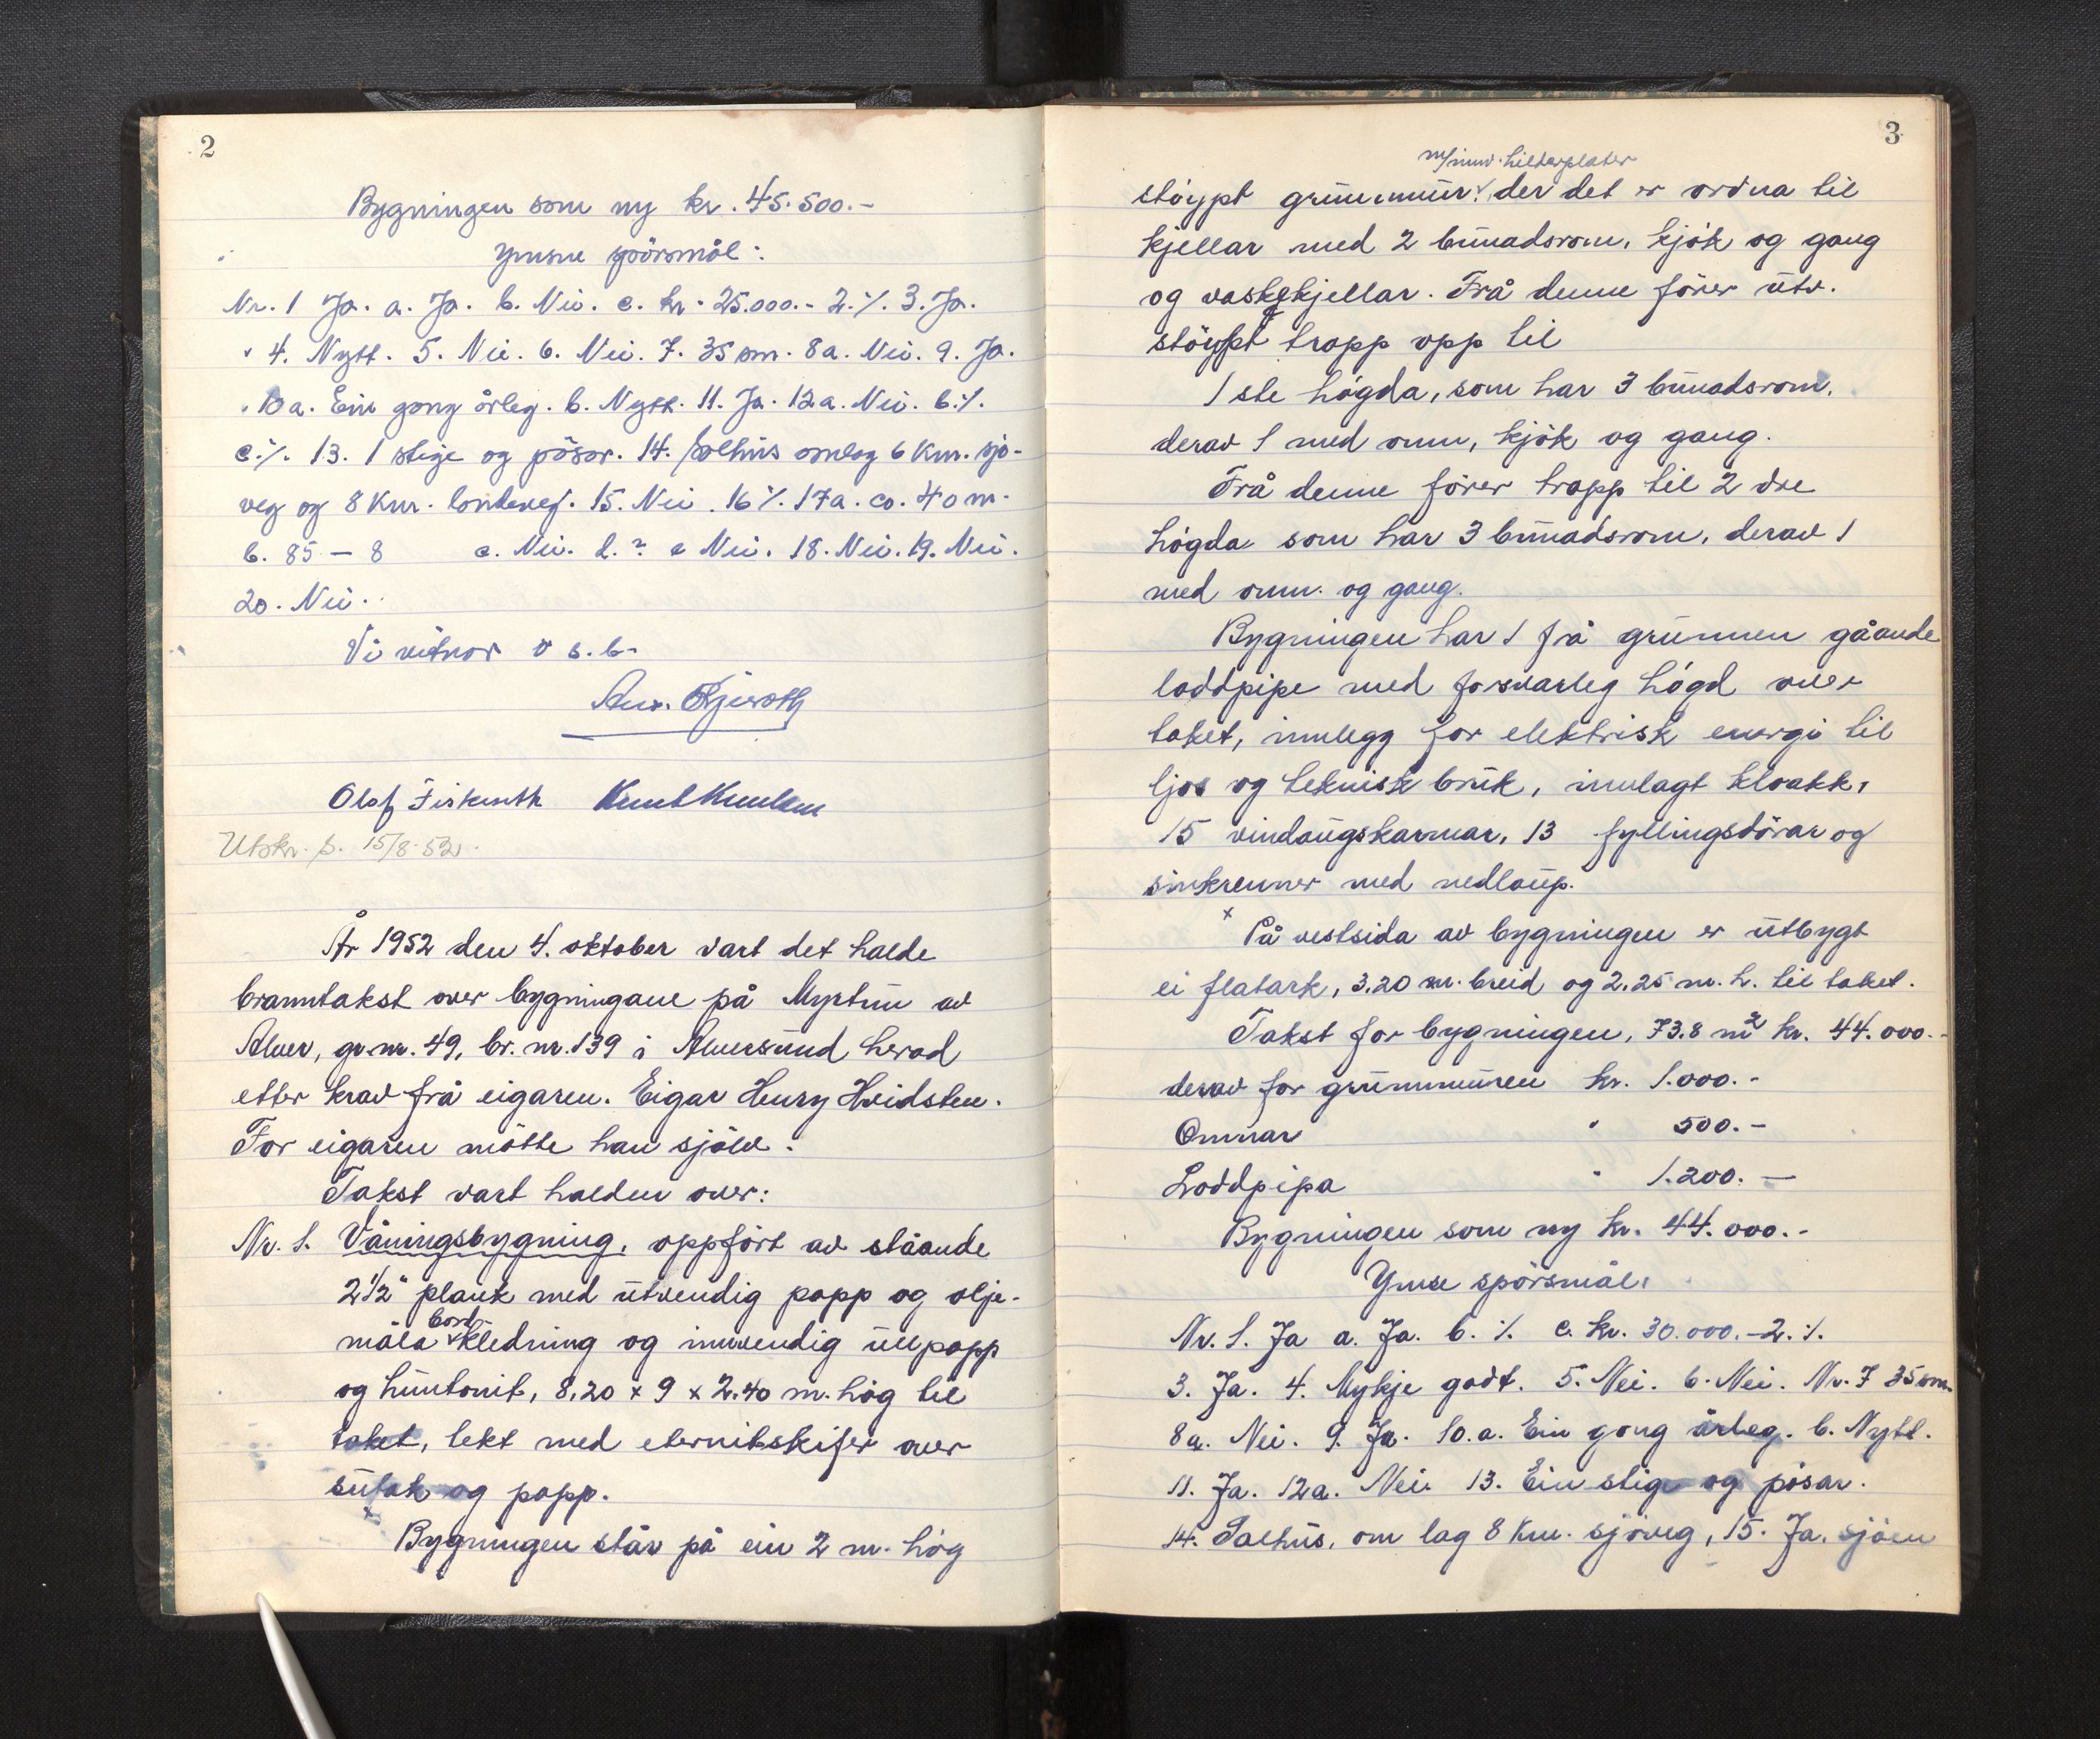 2
Bygningen som ny kr. 45.500.-
Ymse spörsmål:
Nr. 1 Ja. a. Ja. b. Nei. c. kr. 25.000.- 2. ٪. 3. Ja.
4. Nytt. 5. Nei. 6. Nei. 7. 35 cm. 8a. Nei. 9. Ja.
10a. Ein gong årleg. b. Nytt. 11. Ja. 12a. Nei. b. ٪.
c. ٪. 13. 1 stige og pösar. 14. Salhus omlag 6 Km. sjö-
veg og 8 Km. landeveg. 15. Nei. 16 ٪. 17a. ca. 40 m.
b. 85 – 8 c. Nei. d. ? e Nei. 18. Nei. 19. Nei.
20. Nei.
Vi vitnar o s. b.
Olaf Knut Knutsen
Utskr. s. 15/8-52.
År 1952 den 4. oktober vart det halde
branntakst over bygningane på Myrtun av
Alver, gr.nr. 49, br. nr. 139 i Alversund herad
etter krav frå eigaren. Eigar Henry Hvidsten.
For eigaren mötte han sjölv.
Takst vart halden over:
Nr. 1. Våningsbygning, oppfört av ståande
2 1/2" plank med utvendig papp og olje-
måla bordkledning og innvendig ullpapp
og huntonit, 8,20 x 9 x 2.40 m. hög til
taket, tekt med eternitskifer over
sutak og papp.
x
Bygningen står på ein 2 m. hög
3
m/innv. hilterplater
stöypt grunnmur, der det er ordna til
kjellar med 2 bunadsrom, kjök og gang
og vaskekjellar. Frå denne förer utv.
stöypt trapp opp til
1 ste högda, som har 3 bunadsrom,
derav 1 med omn, kjök og gang.
Frå denne förer trapp til 2 dre
högda som har 3 bunadsrom, derav 1
med omn. og gang.
Bygningen har 1 frå grunnen gåande
loddpipe med forsvarleg högd over
taket, innlegg for elektrisk energi til
ljos og teknisk bruk, innlagt kloakk,
15 vindaugskarmar, 13 fyllingsdörar og
sinkrenner med nedlaup.
x På vestsida av bygningen er utbygt
ei flatark, 3,20 m. breid og 2,25 m. h. til taket.
Takst for bygningen, 73.8 m² kr. 44.000.-
derav for grunnmuren kr. 1.000.-
Omnar " 500.-
Loddpipa " 1.200.—
Bygningen som ny kr. 44.000.-
Ymse spörsmål.
Nr. 1. Ja a. Ja. b. ٪. c. kr. 30.000.- 2. ٪.
3. Ja. 4. Mykje godt. 5. Nei. 6. Nei. Nr. 7 35 cm.
8a. Nei. 9. Ja. 10.a. Ein gong årleg. b. Nytt.
11. Ja. 12a. Nei. 13. Ein stige og pösar.
14. Salhus, om lag 8 Km. sjöveg, 15. Ja. sjöen